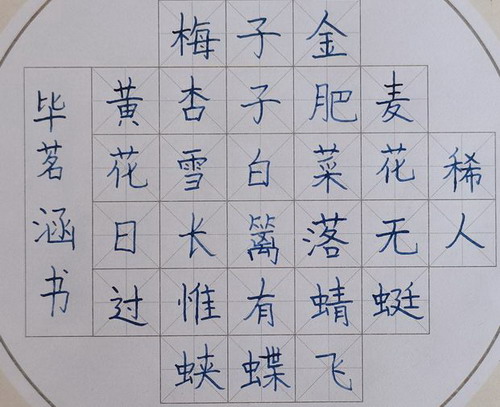 梅子金
黄杏子肥麦
花雪白菜花稀
日长篱落无人
过惟有蜻蜓
蛱蝶飞
毕茗涵书